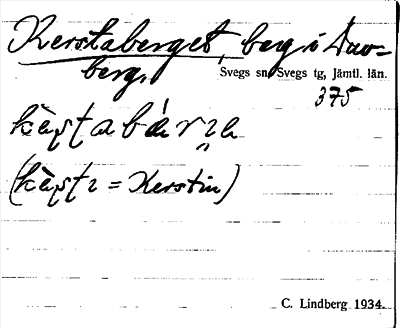 Kerstaberget, berg i Duv-
berg.
Svegs sn, Svegs tg, Jämtl. län.
375
(kæ̀ʂtɪ = Kerstin)
C. Lindberg 1934.